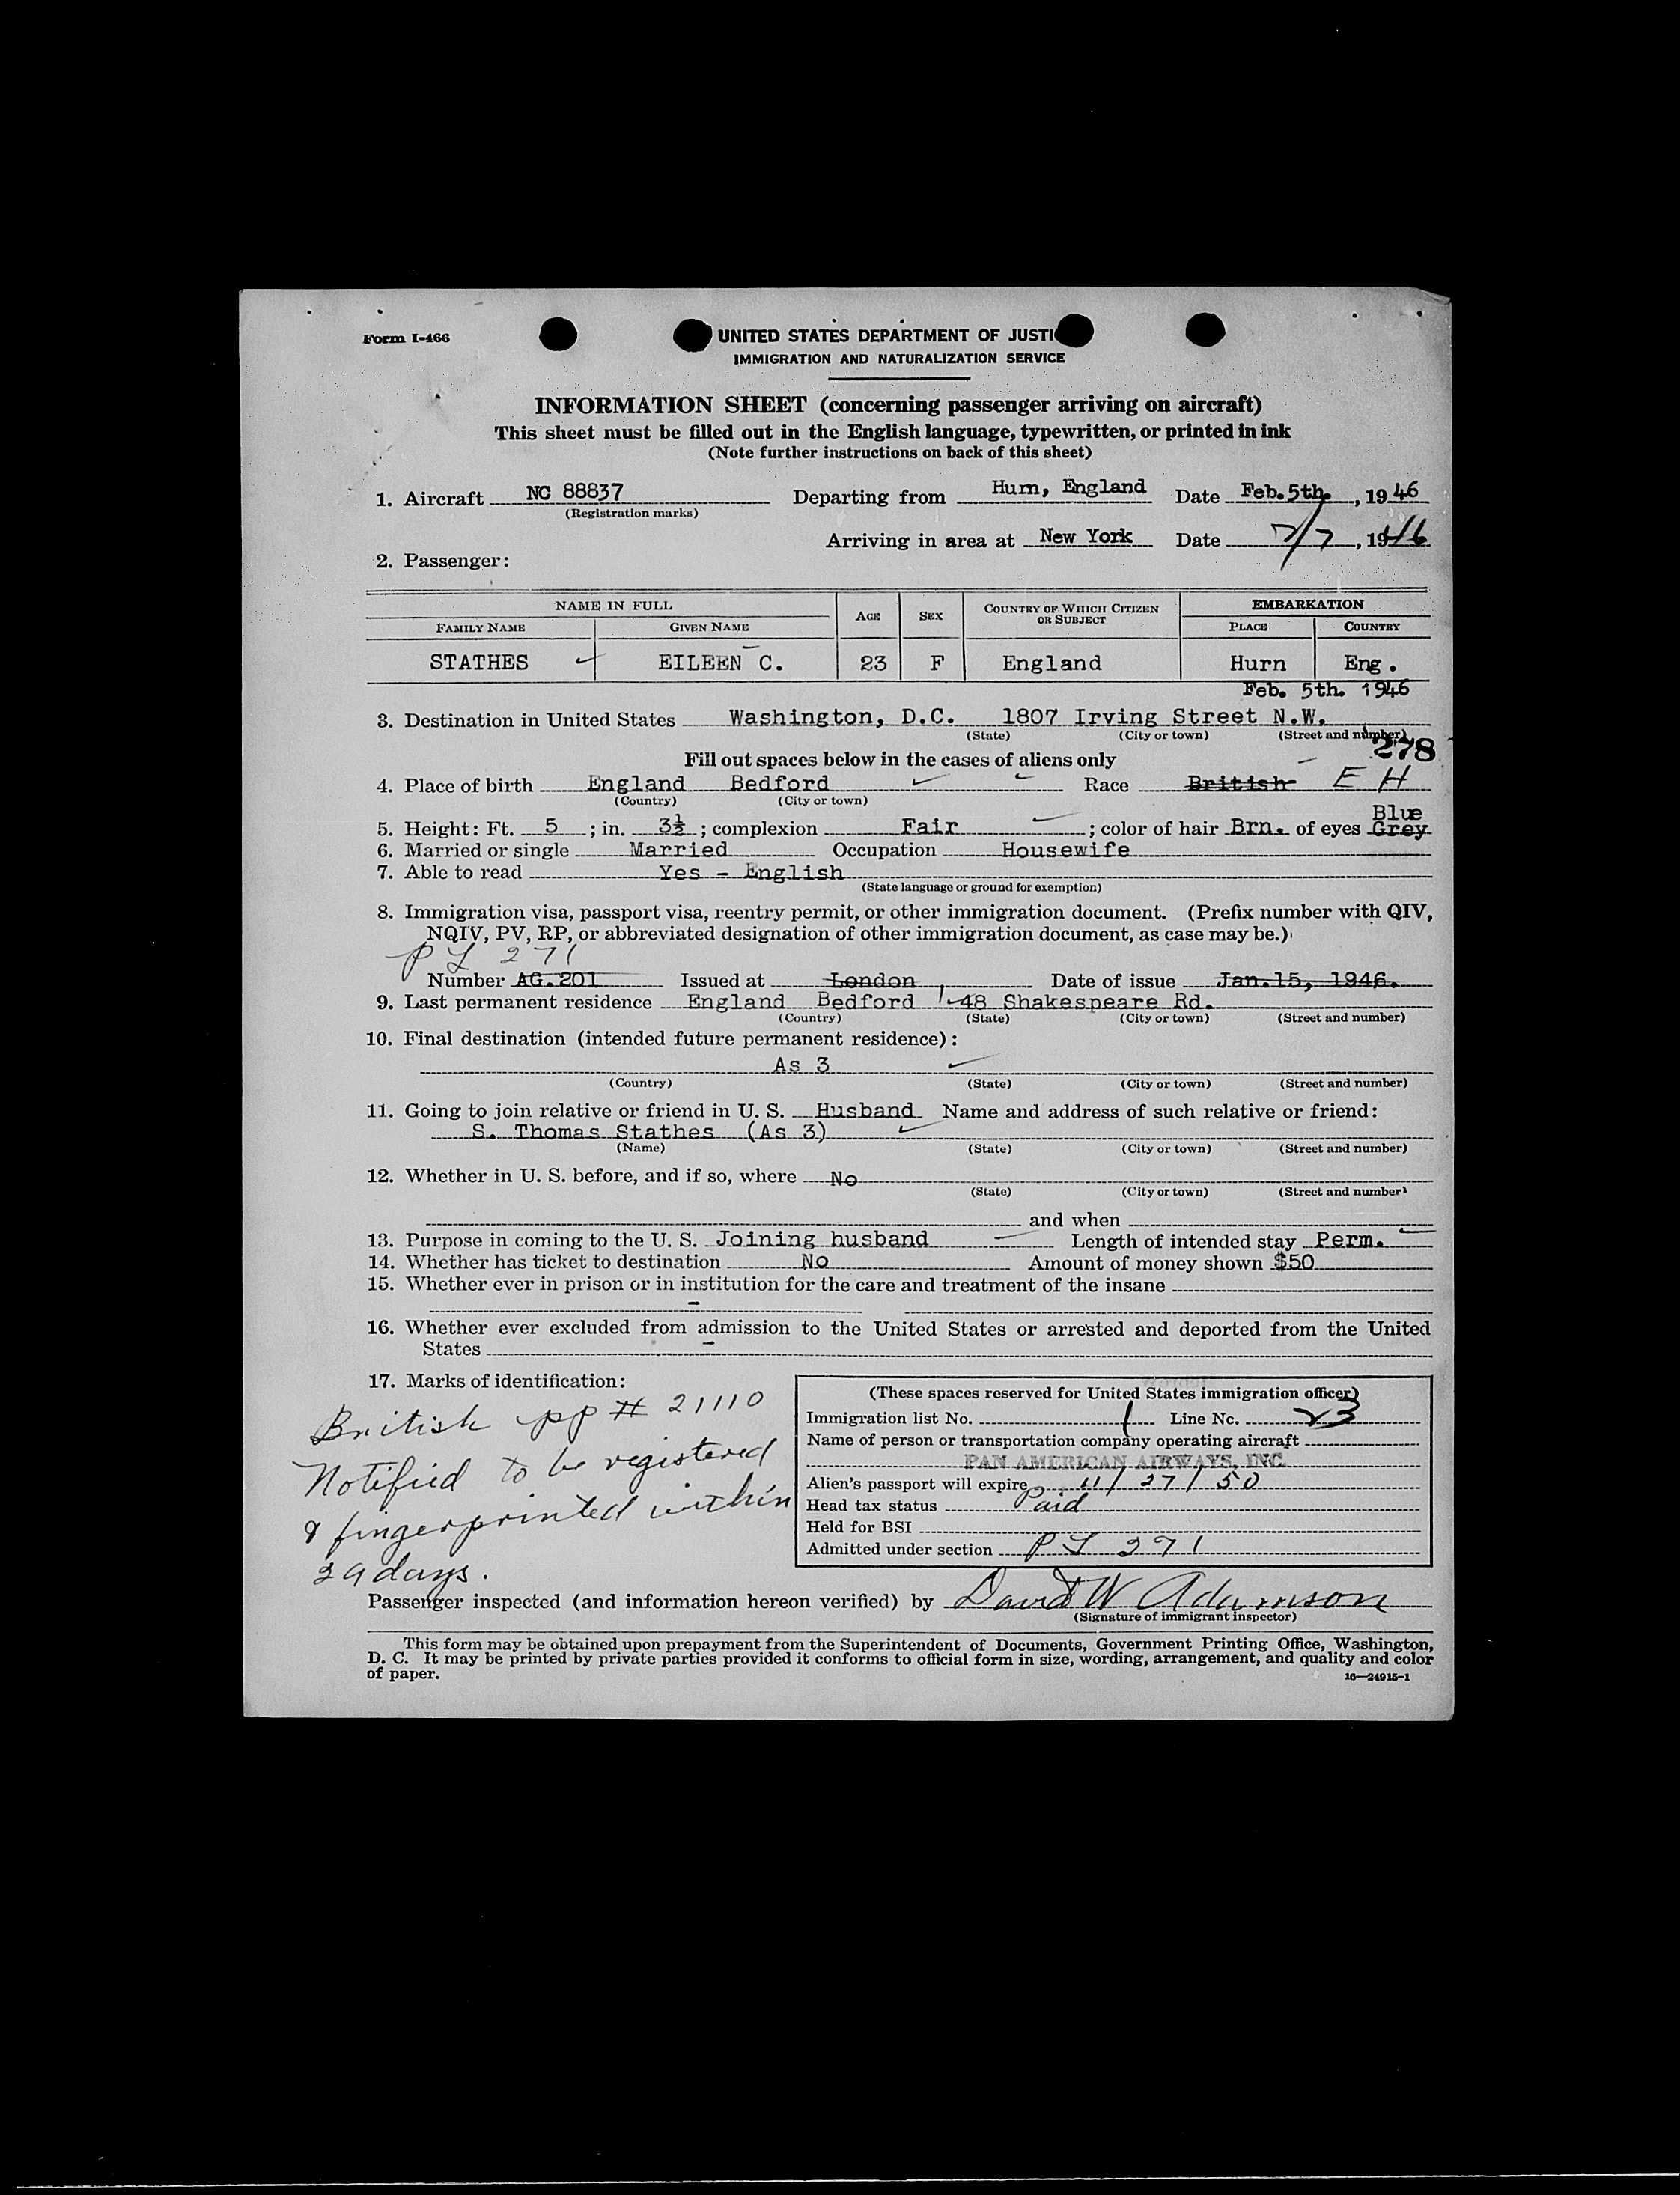 Form I-466
UNITED STATES DEPARTMENT OF JUSTI
IMMIGRATION AND NATURALIZATION SERVICE
INFORMATION SHEET (concerning passenger arriving on aircraft)
This sheet must be filled out in the English language, typewritten, or printed in ink
(Note further instructions on back of this sheet)
1. Aircraft NC 88837 Departing from Hurn, England Date Feb. 5th. , 19 46
(Registration marks)
Arriving in area at New York Date 2/7 , 19 46
2. Passenger:
NAME IN FULL AGE SEX COUNTRY OF WHICH CITIZEN OR SUBJECT EMBARKATION
FAMILY NAME GIVEN NAME PLACE COUNTRY
STATHES EILEEN C. 23 F England Hurn Eng.
Feb. 5th. 1946
3. Destination in United States Washington, D.C. 1807 Irving Street N.W.
(State) (City or town) (Street and number)
278
Fill out spaces below in the cases of aliens only
4. Place of birth England Bedford Race British E H
(Country) (City or town)
Blue
5. Height: Ft. 5 ; in. 3½ ; complexion Fair ; color of hair Brn. of eyes Grey
6. Married or single Married Occupation Housewife
7. Able to read Yes - English
(State language or ground for exemption)
8. Immigration visa, passport visa, reentry permit, or other immigration document. (Prefix number with QIV,
NQIV, PV, RP, or abbreviated designation of other immigration document, as case may be.)
P L 271
Number AG.201 Issued at London Date of issue Jan.15, 1946.
9. Last permanent residence England Bedford 48 Shakespeare Rd.
(Country) (State) (City or town) (Street and number)
10. Final destination (intended future permanent residence):
As 3
(Country) (State) (City or town) (Street and number)
11. Going to join relative or friend in U. S. Husband Name and address of such relative or friend:
S. Thomas Stathes (As 3)
(Name) (State) (City or town) (Street and number)
12. Whether in U. S. before, and if so, where No
(State) (City or town) (Street and number)
and when
13. Purpose in coming to the U. S. Joining husband Length of intended stay Perm.
14. Whether has ticket to destination No Amount of money shown $50
15. Whether ever in prison or in institution for the care and treatment of the insane
-
16. Whether ever excluded from admission to the United States or arrested and deported from the United
States -
17. Marks of identification:
British pp # 21110
Notified to be registered
& fingerprinted within
29 days.
(These spaces reserved for United States immigration officer)
Immigration list No. 1 Line No. 23
Name of person or transportation company operating aircraft
PAN AMERICAN AIRWAYS, INC.
Alien's passport will expire 11/27/50
Head tax status Paid
Held for BSI
Admitted under section P L 271
Passenger inspected (and information hereon verified) by David W Adamson
(Signature of immigrant inspector)
This form may be obtained upon prepayment from the Superintendent of Documents, Government Printing Office, Washington,
D. C. It may be printed by private parties provided it conforms to official form in size, wording, arrangement, and quality and color
of paper. 16—24915-1